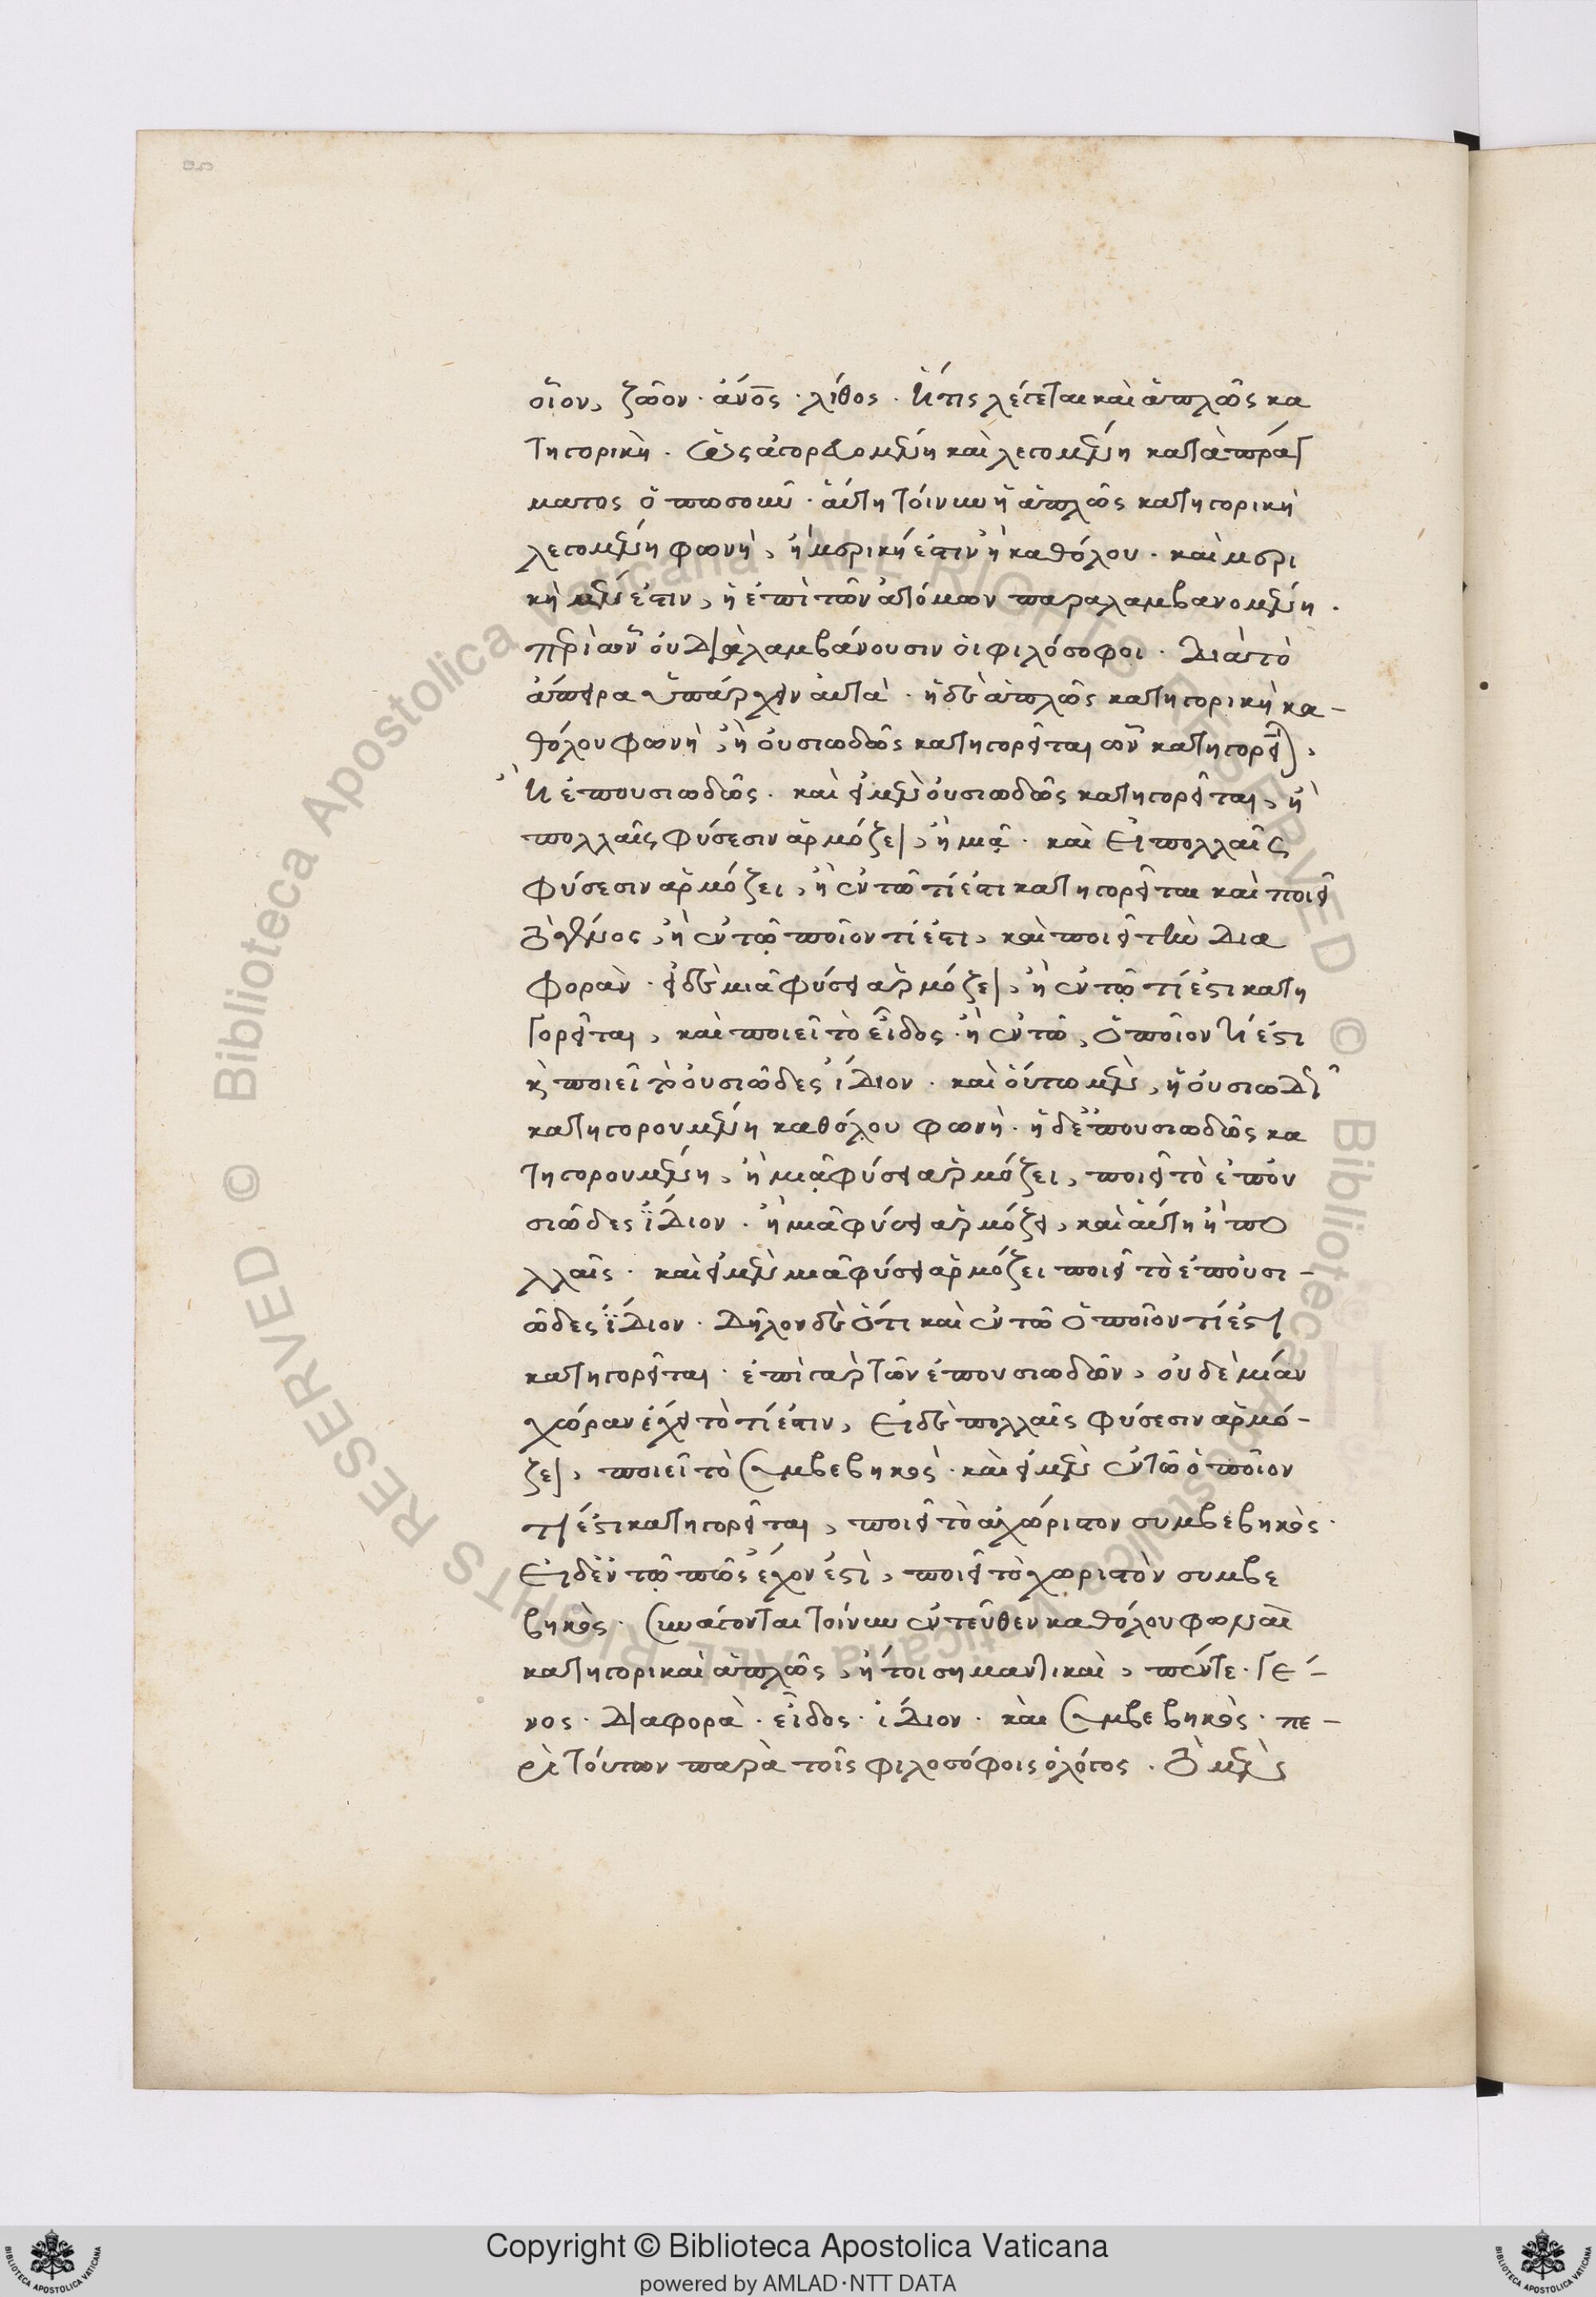 οἷον, ζῶον · ἄνος · λίθος · ἥτις λέγεται καὶ ἁπλῶς κα
τηγορικὴ · ὡς ἀγορευομένη καὶ λεγομένη κατὰ πράγ
ματος ὁπωσοῦν · αὕτη τοίνυν ἡ ἁπλῶς κατηγορικὴ
λεγομένη φωνὴ, ἢ μερική ἐστιν ἢ καθόλου · καὶ μερι
κὴ μέν ἐστιν, ἡ ἐπὶ τῶν ἀτόμων παραλαμβανομένη ·
περὶ ὧν οὐ διαλαμβάνουσιν οἱ φιλόσοφοι · διὰ τὸ
ἄπειρα ὑπάρχειν αὐτὰ · ἡ δὲ ἁπλῶς κατηγορικὴ κα-
θόλου φωνὴ, ἢ οὐσιωδῶς κατηγορεῖται ὧν κατηγορεῖται,
ἢ ἐπουσιωδῶς · καὶ εἰ μὲν οὐσιωδῶς κατηγορεῖται, ἢ
πολλαῖς φύσεσιν ἁρμόζει, ἢ μιᾷ · καὶ εἰ πολλαῖς
φύσεσιν ἁρμόζει, ἢ ἐν τῶ τί ἐστι κατηγορεῖται καὶ ποιεῖ
τὸ γένος, ἢ ἐν τῶ ποῖον τί ἐστι, καὶ ποιεῖ τὴν δια
φορὰν · εἰ δὲ μιᾶ φύσει ἁρμόζει, ἢ ἐν τῶ τί ἐστι κατη
γορεῖται, καὶ ποιεῖ τὸ εἶδος · ἢ ἐν τῶ, ὁποῖον τί ἐστι
κ ποιεῖ τὸ οὐσιῶδες ἴδιον · καὶ οὕτω μὲν, ἡ οὐσιωδῶς
κατηγορουμένη καθόλου φωνὴ · ἡ δὲ ἐπουσιωδῶς κα
τηγορουμένη, ἢ μιᾷ φύσει ἁρμόζει, ποιεῖ τὸ ἐπου
σιῶδες ἴδιον · ἢ μιᾶ φύσει ἁρμόζει, καὶ αὕτη ἢ πο
λλαῖς · καὶ εἰ μὲν μιᾶ φύσει ἁρμόζει ποιεῖ τὸ ἐπουσι-
ῶδες ἴδιον · δῆλον δὲ ὅτι καὶ ἐν τῶ ὁποῖον τί ἐστι
κατηγορεῖται · ἐπὶ γὰρ τῶν ἐπουσιωδῶν, οὐδεμίαν
χώραν ἔχει τὸ τί ἐστιν, εἰ δὲ πολλαῖς φύσεσιν ἁρμό-
ζει, ποιεῖ τὸ συμβεβηκὸς · καὶ εἰ μὲν ἐν τῶ ὁποῖον
τί ἐστι κατηγορεῖται, ποιεῖ τὸ ἀχώριστον συμβεβηκὸς ·
εἰ δὲ ἐν τῶ πῶς ἔχον ἐστὶ, ποιεῖ τὸ χωριστὸν συμβε
βηκὸς · συνάγονται τοίνυν ἐντεῦθεν καθόλου φωναὶ
κατηγορικαὶ ἁπλῶς, ἤτοι σημαντικαὶ, πέντε · γέ-
νος · διαφορὰ · εἶδος · ἴδιον · καὶ συμβεβηκὸς · πε-
ρὶ τούτων παρὰ τοῖς φιλοσόφοις ὁ λόγος · τὸ μὲν